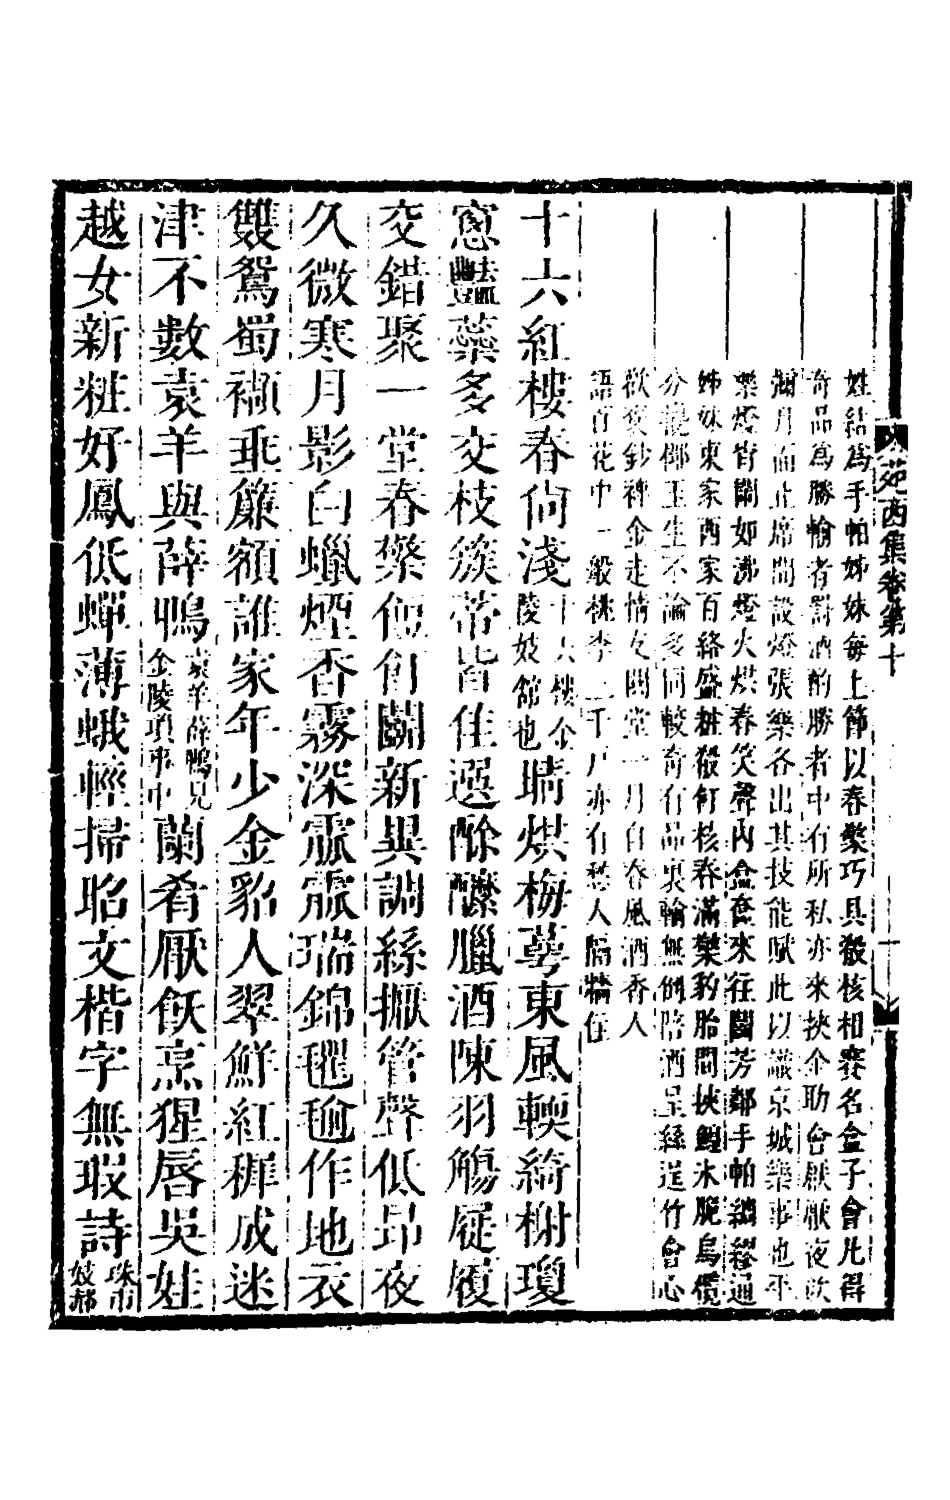 姓結爲手帕姊妹每上節以春檠巧具殽核相賽名盒子會凡得
奇品爲勝輸者罰酒酌勝者中有所私亦來挾金助會厭厭夜飲
彌月而止席間設燈張樂各出其技能賦此以識京城樂事也平
樂燈宵鬧如沸燈火烘春笑聲內盒奩來往鬭芳鄰手帕綢繆通
姊妹東家西家百絡盛粧殽飣核春滿檠豹胎間挾鰉冰脆烏欖
分攙椰玉生不論多同較奇有品裏輸無例陪酒呈絲逞竹會心
歡褒鈔裨金走情友鬨堂一月自春風酒香人
語百花中一般桃李三千戶亦有愁人隔牆住
十六紅樓春尙淺十六樓金陵妓館也晴烘梅萼東風輭綺樹瓊
窻豔藥多交枝簇蒂皆佳選酴醾臘酒陳羽觴屣履
交錯聚一堂春檠值旬鬭新異調絲擫管聲低昻夜
久微寒月影白蠟煙香霧深霢霢瑞錦氍毹作地衣
雙鴛蜀襭垂簾額誰家年少金貂人翠鮮紅稺成迷
津不數袁羊與薛鴨袁羊薛鴨見金陵瑣事中蘭肴厭飫烹猩唇吳娃
越女新粧好鳳低蟬薄蛾輕掃昭文楷字無瑕詩珠市妓郝
苑西集卷第十